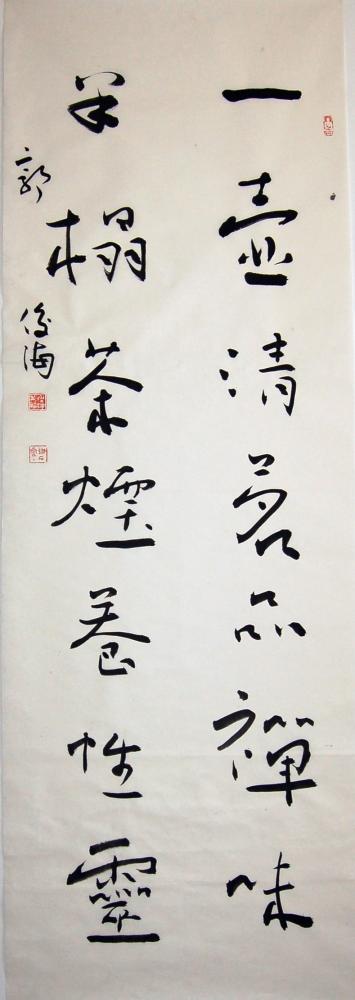 一壺清茗品禪味
半榻茶煙養性靈
郭俊海